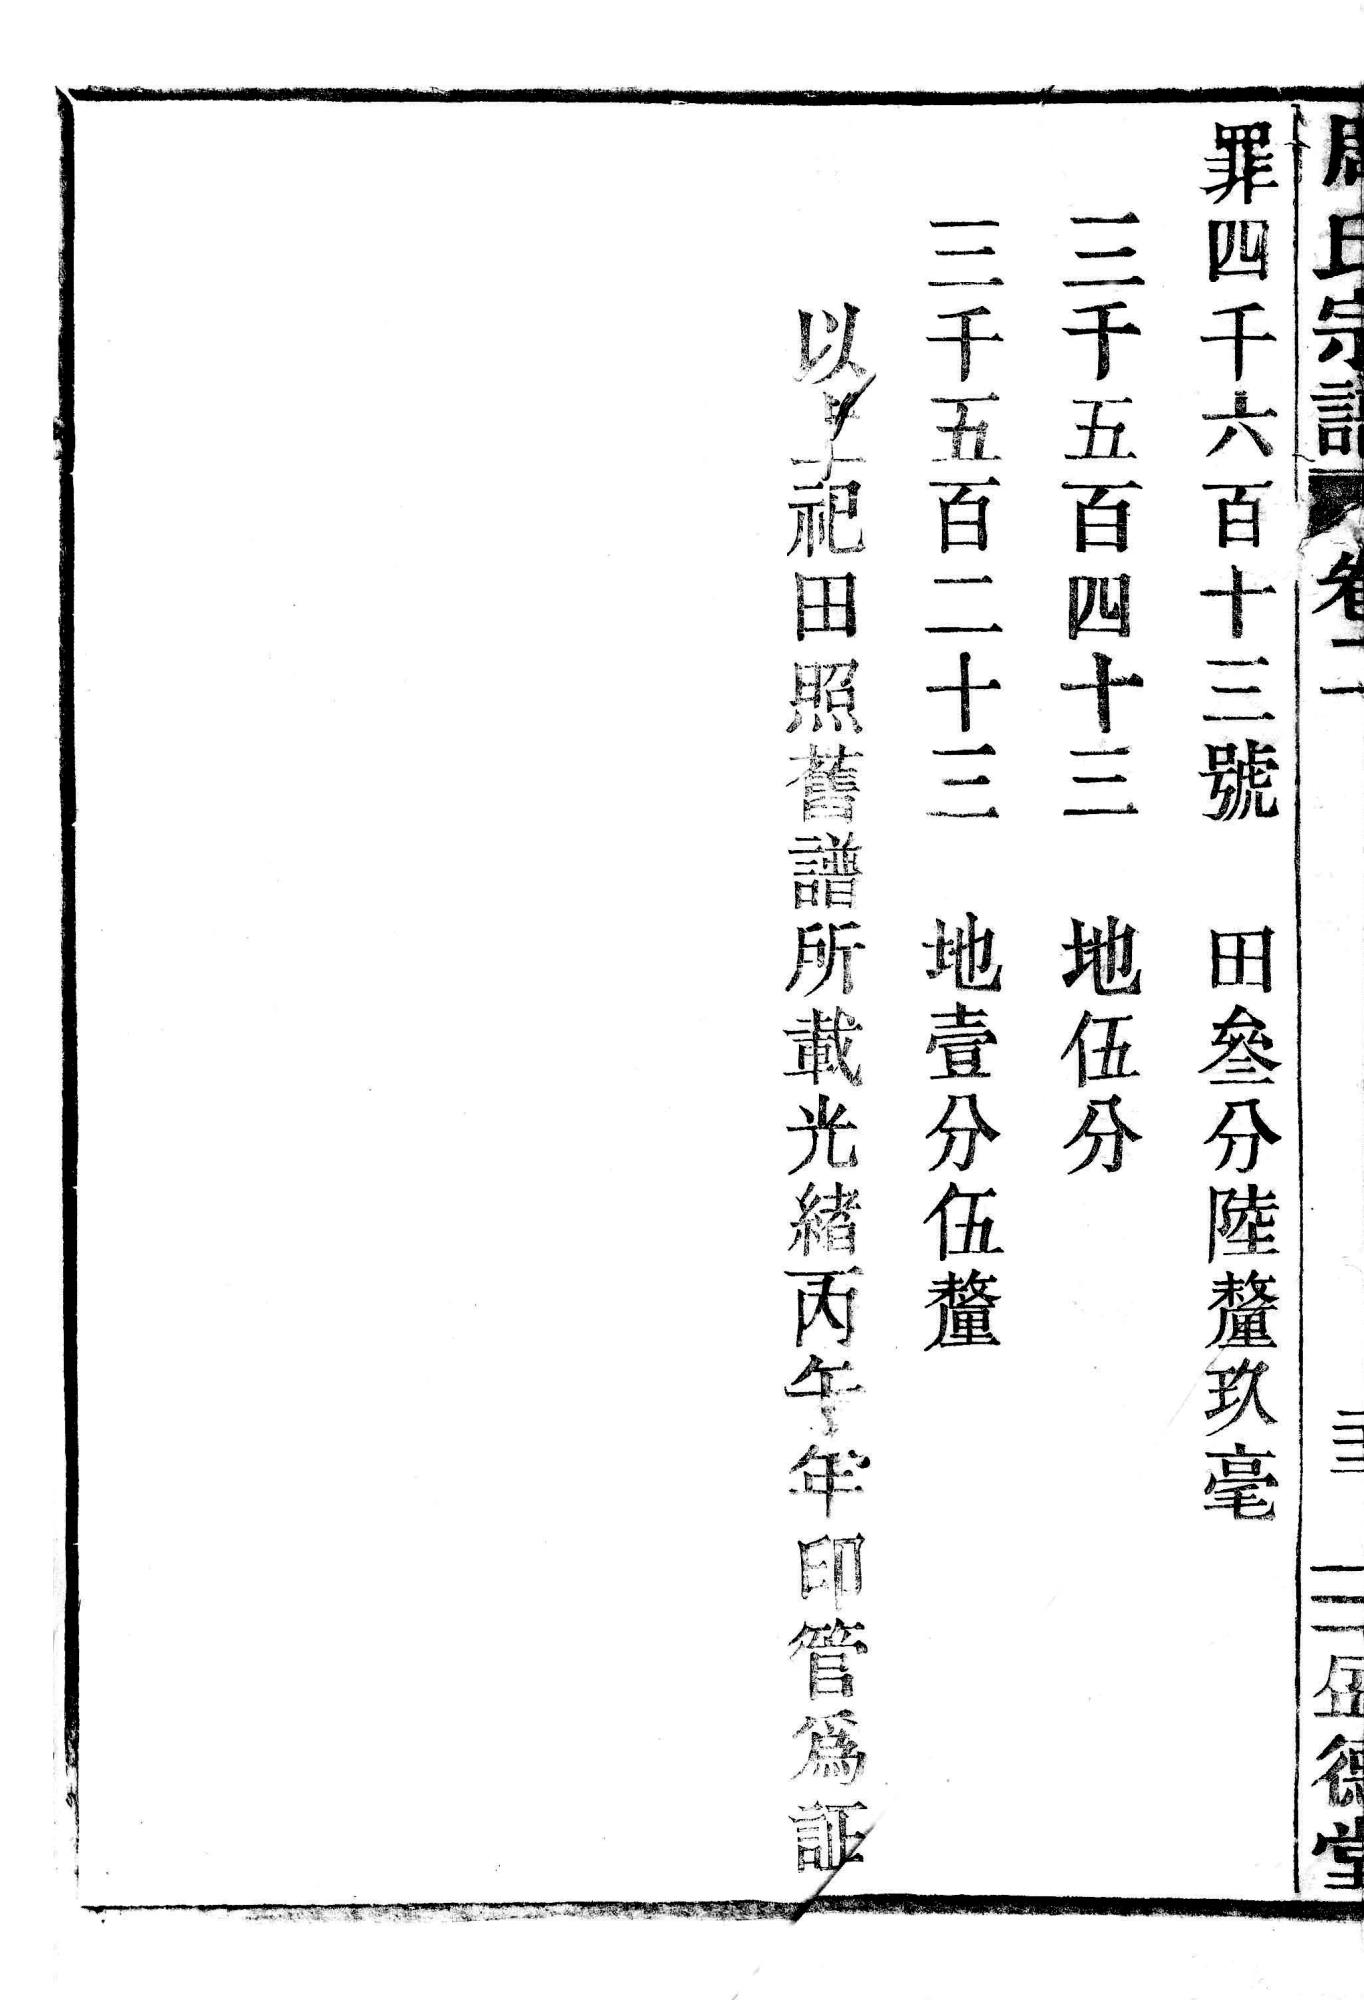 周氏宗譜 卷十一 三十三 三十 盛德堂
罪四千六百十三號 田叄分陸釐玖毫
三千五百四十三 地伍分
三千五百二十三 地壹分伍釐
以上祀田照舊譜所載光緒丙午年印管為証